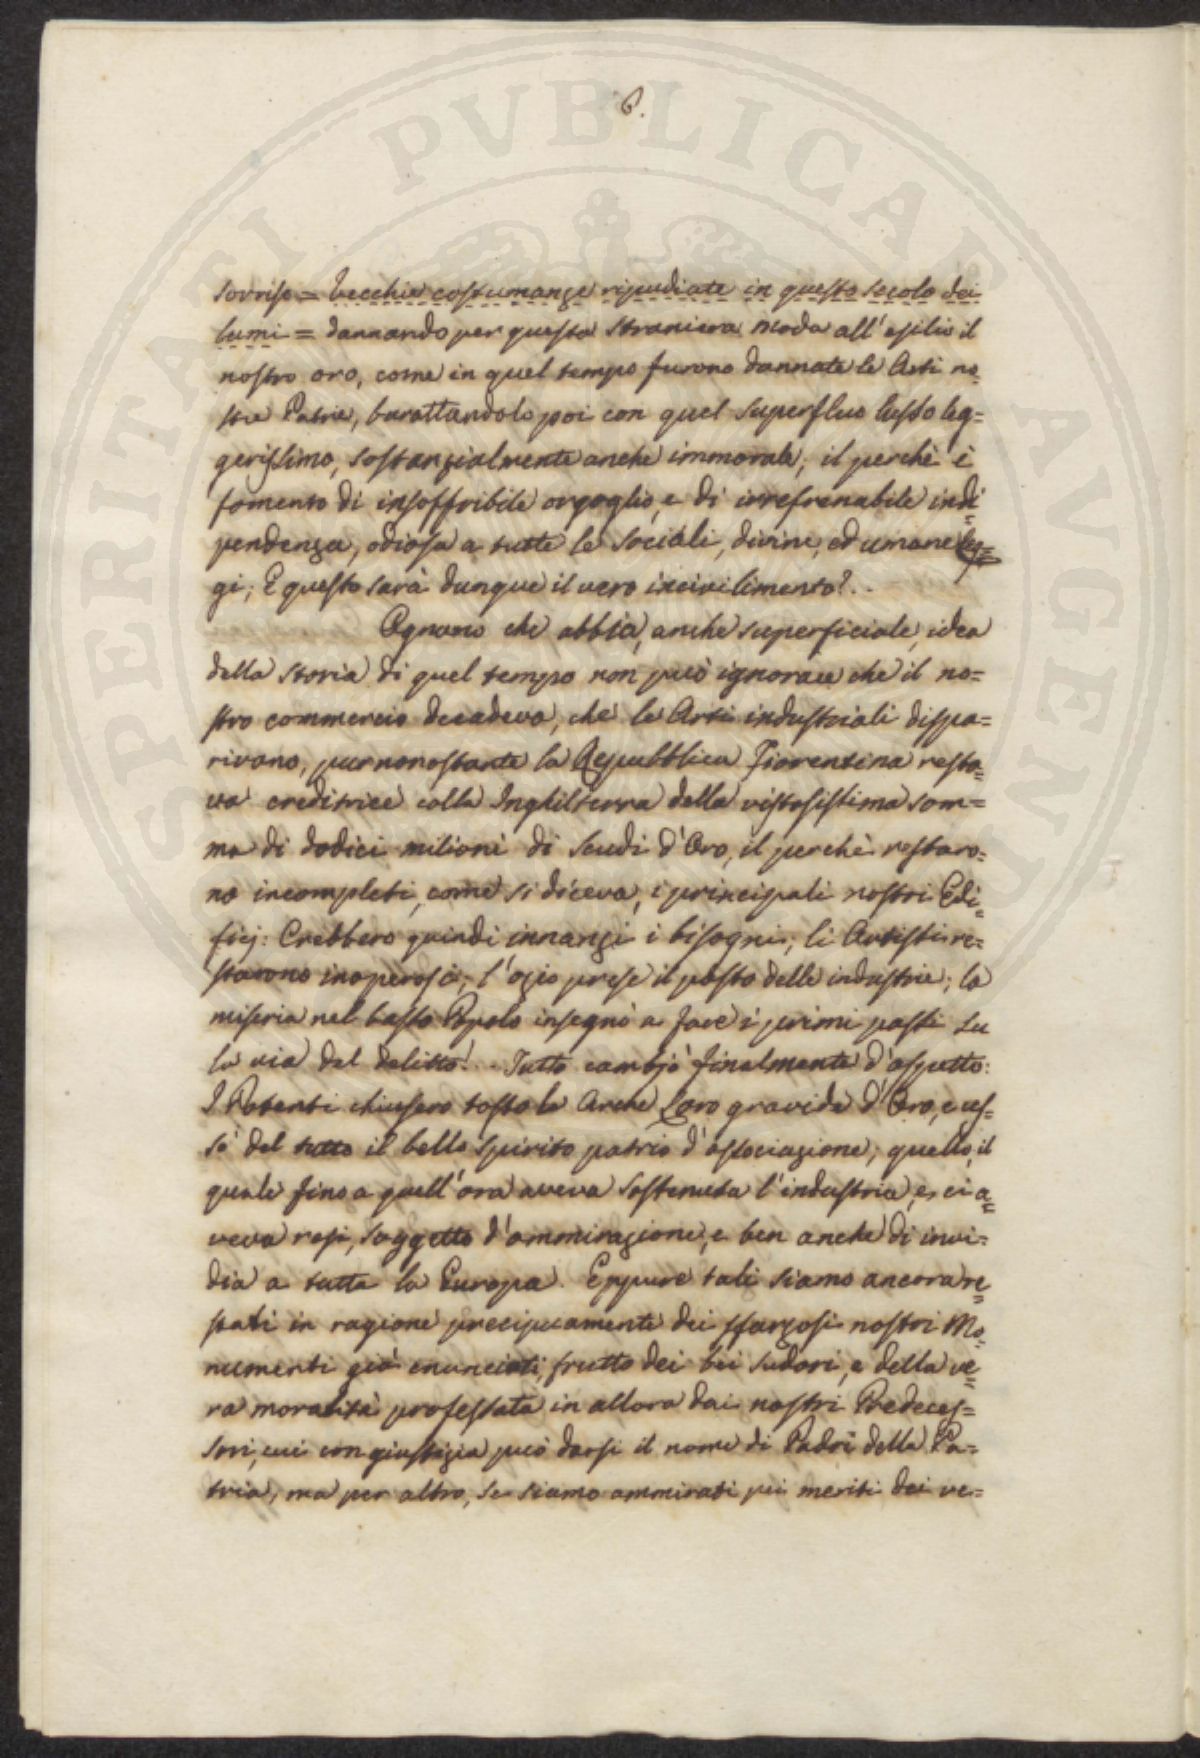 6.
sorriso = Vecchie costumanze ripudiate in questo secolo dei
lumi = dannando per questa straniera moda all'esilio il
nostro oro, come in quel tempo furono dannate le Arti no=
stre Patrie, barattandolo poi con quel superfluo lusso leg=
gerissimo, sostanzialmente anche immorale, il perchè è
fomento di insoffribile orgoglio, e di irrefrenabile indi=
pendenza, odiosa a tutte le sociali, divine, ed umane leg=
gi; E questo sarà dunque il vero incivilimento?..
Ognuno che abbia, anche superficiale, idea
della storia di quel tempo non può ignorare che il no=
stro commercio decadeva, che le Arti industriali dispa=
rivano, pur nonostante la Repubblica Fiorentina resta=
va creditrice colla Inghilterra della vistosissima som=
ma di dodici milioni di Scudi d'Oro, il perchè restaro=
no incompleti, come si diceva, i principali nostri Edi=
ficj: Crebbero quindi innanzi i bisogni, li Artisti re=
starono inoperosi, l'ozio prese il posto delle industrie; la
miseria nel basso Popolo insegnò a fare i primi passi su
la via del delitto!.. Tutto cambjò finalmente d'aspetto:
I Potenti chiusero tosto le Arche Loro gravide d'Oro, e ces=
sò del tutto il bello spirito patrio d'associazione, quello, il
quale fino a quell'ora aveva sostenuta l'industria, e ci a=
veva resi, soggetto d'ammirazione, e ben anche di invi=
dia a tutta la Europa. Eppure tali siamo ancora re=
stati in ragione precipuamente dei sfarzosi nostri Mo=
numenti già enunciati, frutto dei bei sudori, e della ve=
ra moralità professata in allora dai nostri Predeces=
sori, cui con giustizia può darsi il nome di Padri della Pa=
tria, ma per altro, se siamo ammirati pei meriti dei ve=
SPERITATI PVBLICAE AVGENDAE